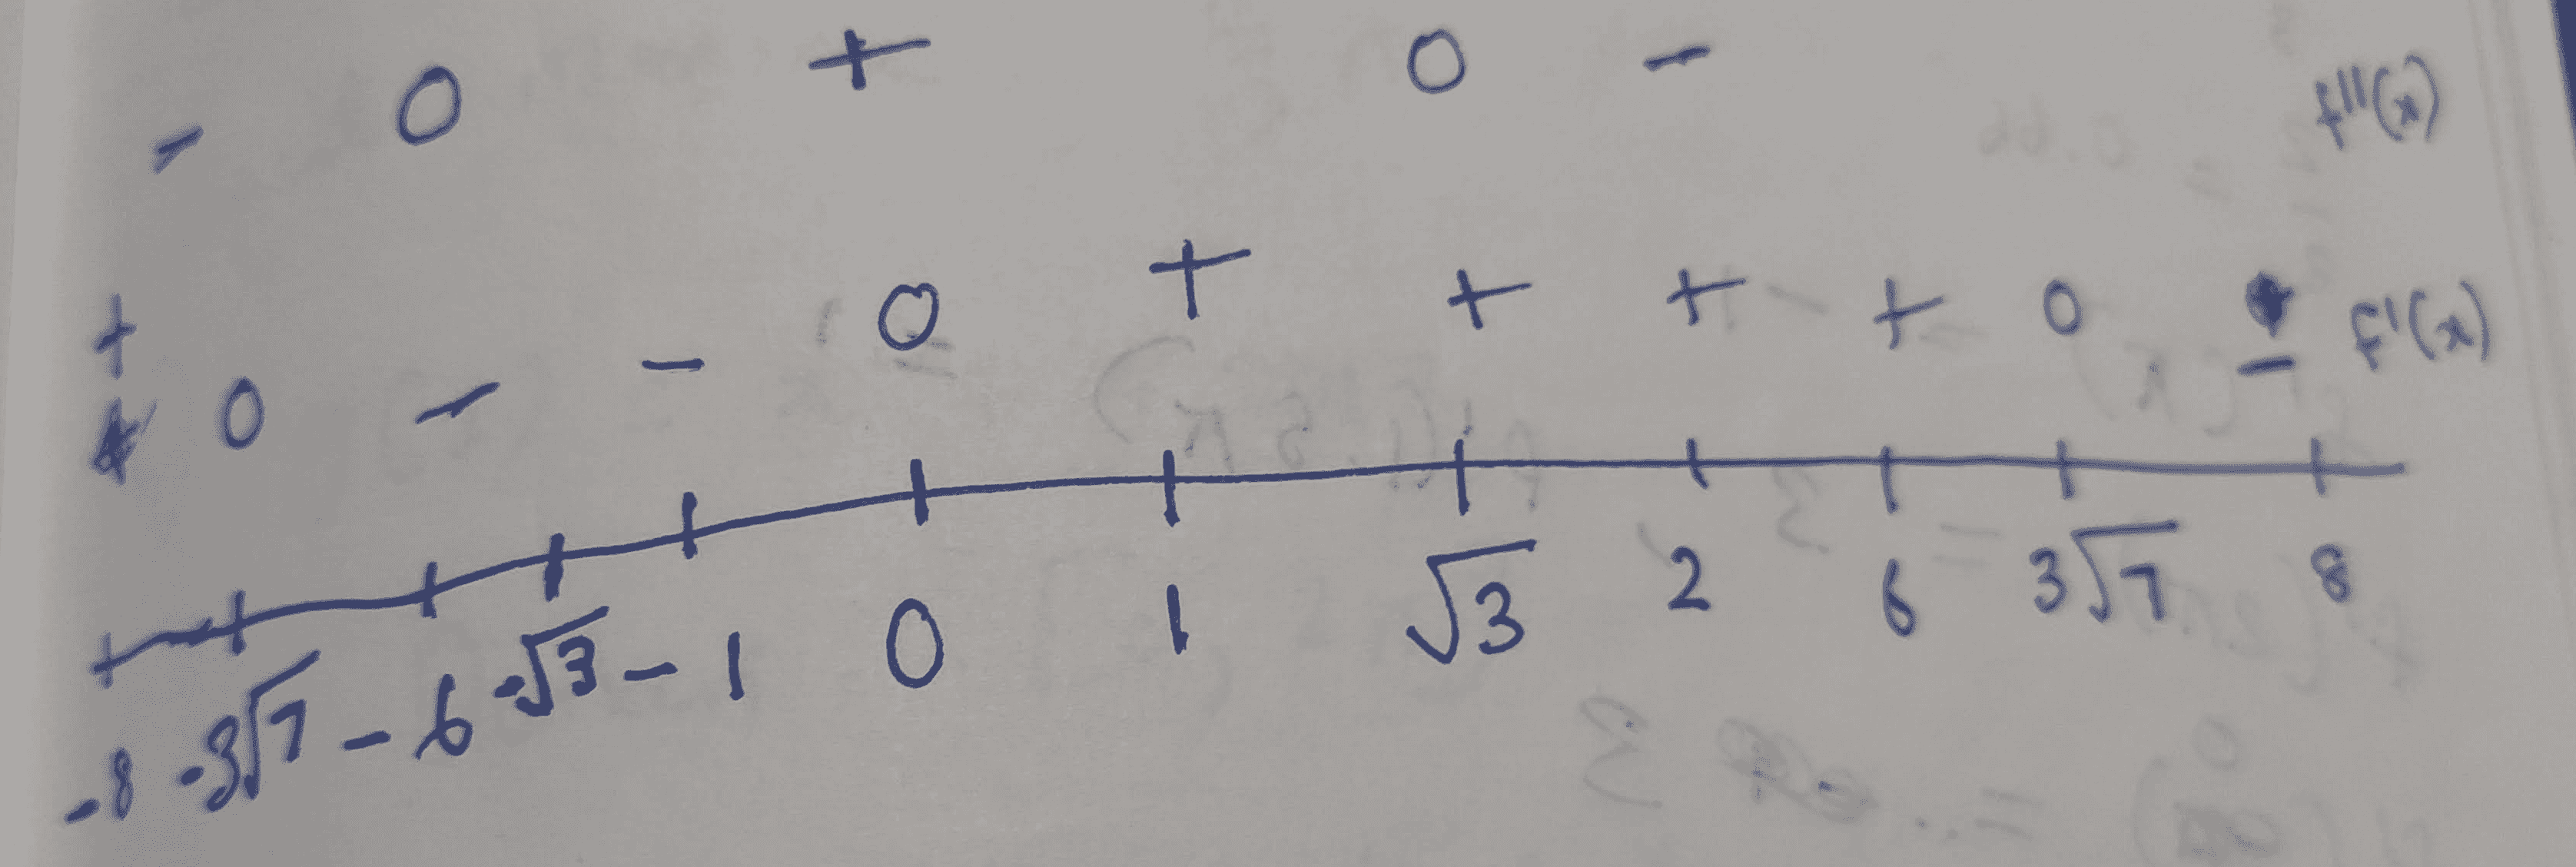 - 0 + 0 - f''(x)
+ 0 - - 0 + + + + 0 - f'(x)
-8 -3√7 -6 -√3 -1 0 1 √3 2 6 3√7 8